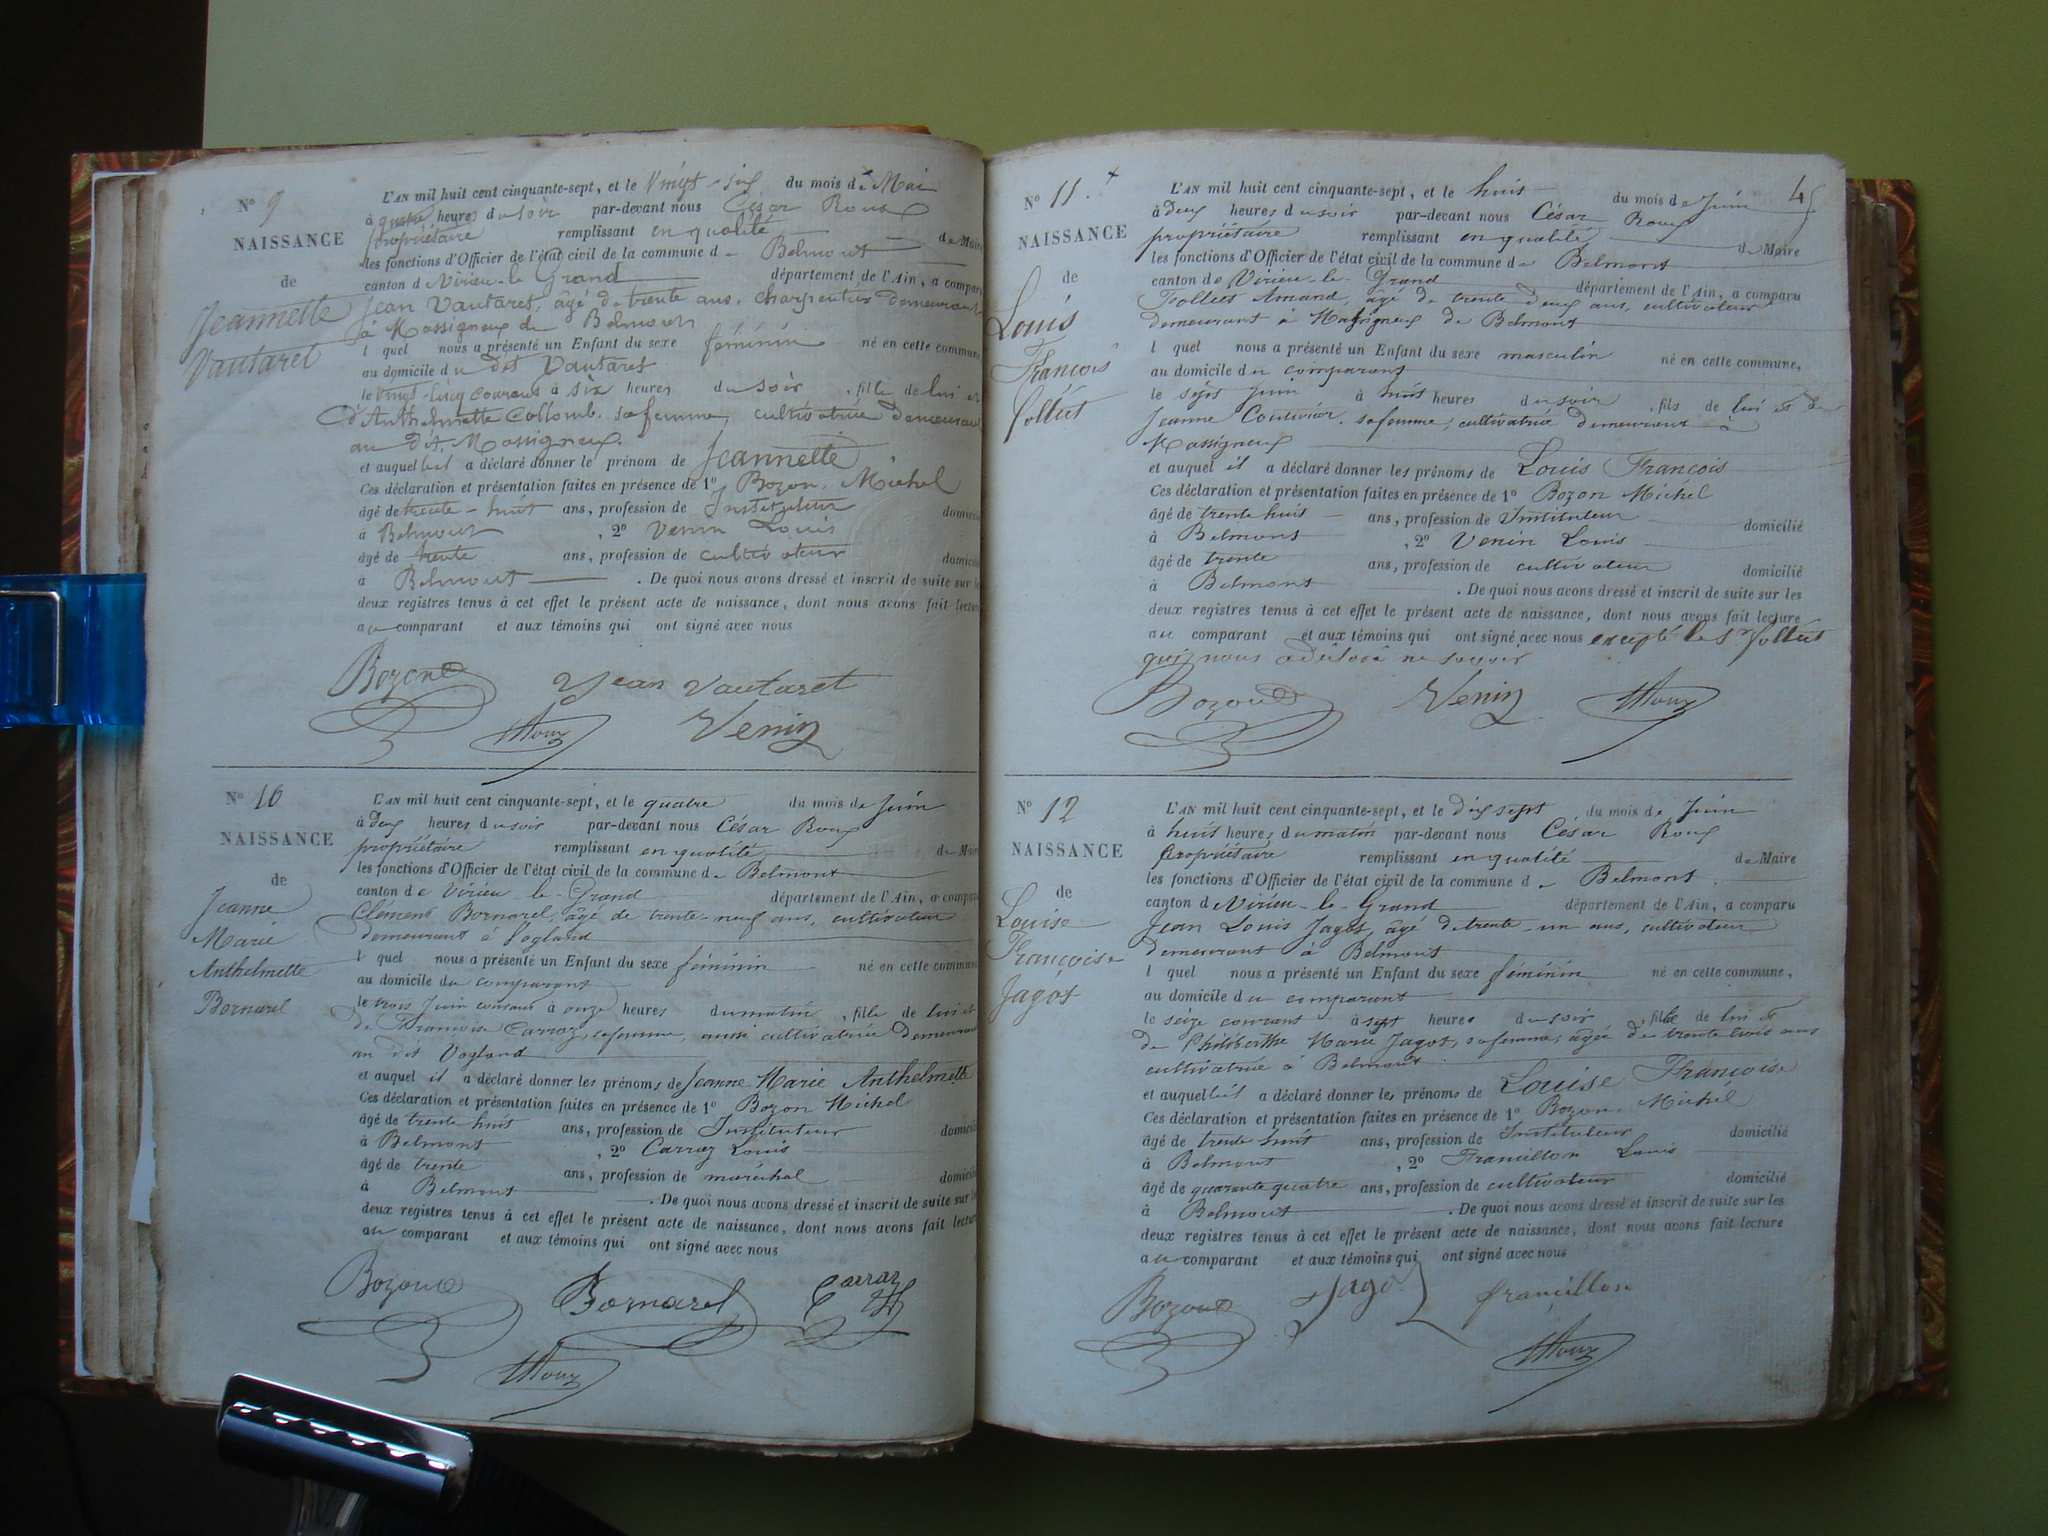 N° 9
NAISSANCE
de
Jeannette
Vautaret
L'AN mil huit cent cinquante-sept, et le Vingt-six du mois de Mai
à quatre heures du soir par-devant nous César Roux
propriétaire remplissant en qualité de Maire
les fonctions d'Officier de l'état civil de la commune de Belmont
canton de Virieu-le-Grand département de l'Ain, a comparu
Jean Vautaret, âgé de trente ans, charpentier demeurant
à Massigneux de Belmont
l quel nous a présenté un Enfant du sexe féminin né en cette commune
au domicile du dit Vautaret
le vingt-cinq courant à six heures du soir, fille de lui et
d'Anthelmette Collomb, sa femme, cultivatrice demeurant
au dit Massigneux.
et auquel il a déclaré donner le prénom de Jeannette
Ces déclaration et présentation faites en présence de 1° Bozon Michel
âgé de trente-huit ans, profession de Instituteur domicilié
à Belmont, 2° Venin Louis
âgé de trente ans, profession de cultivateur domicilié
à Belmont. De quoi nous avons dressé et inscrit de suite sur les
deux registres tenus à cet effet le présent acte de naissance, dont nous avons fait lecture
au comparant et aux témoins qui ont signé avec nous
Bozon Jean Vautaret
Roux Venin
N° 10
NAISSANCE
de
Jeanne
Marie
Anthelmette
Bornarel
L'AN mil huit cent cinquante-sept, et le quatre du mois de Juin
à deux heures du soir par-devant nous César Roux
propriétaire remplissant en qualité de Maire
les fonctions d'Officier de l'état civil de la commune de Belmont
canton de Virieu-le-Grand département de l'Ain, a comparu
Clément Bornarel, âgé de trente-neuf ans, cultivateur
demeurant à Vogland
l quel nous a présenté un Enfant du sexe féminin né en cette commune
au domicile du comparant
le trois Juin courant à onze heures du matin, fille de lui et
de Françoise Carraz, sa femme, aussi cultivatrice demeurant
au dit Vogland
et auquel il a déclaré donner les prénoms de Jeanne Marie Anthelmette
Ces déclaration et présentation faites en présence de 1° Bozon Michel
âgé de trente huit ans, profession de Instituteur domicilié
à Belmont, 2° Carraz Louis
âgé de trente ans, profession de maréchal domicilié
à Belmont. De quoi nous avons dressé et inscrit de suite sur les
deux registres tenus à cet effet le présent acte de naissance, dont nous avons fait lecture
au comparant et aux témoins qui ont signé avec nous
Bozon Bornarel Carraz
Roux
45
N° 11.
NAISSANCE
de
Louis
François
Jollret
L'AN mil huit cent cinquante-sept, et le huit du mois de Juin
à deux heures du soir par-devant nous César Roux
propriétaire remplissant en qualité de Maire
les fonctions d'Officier de l'état civil de la commune de Belmont
canton de Virieu-le-Grand département de l'Ain, a comparu
Amand, âgé de trente deux ans, cultivateur
demeurant à Massigneux de Belmont
l quel nous a présenté un Enfant du sexe masculin né en cette commune,
au domicile du comparant
le sept Juin à huit heures du soir, fils de lui et de
Jeanne Couturier, sa femme, cultivatrice demeurant à
Massigneux
et auquel il a déclaré donner les prénoms de Louis François
Ces déclaration et présentation faites en présence de 1° Bozon Michel
âgé de trente huit ans, profession de Instituteur domicilié
à Belmont, 2° Venin Louis
âgé de trente ans, profession de cultivateur domicilié
à Belmont. De quoi nous avons dressé et inscrit de suite sur les
deux registres tenus à cet effet le présent acte de naissance, dont nous avons fait lecture
au comparant et aux témoins qui ont signé avec nous excepté le Sr
qui nous a déclaré ne savoir
Bozon Venin Roux
N° 12
NAISSANCE
de
Louise
Françoise
Jagot
L'AN mil huit cent cinquante-sept, et le dix sept du mois de Juin
à huit heures du matin par-devant nous César Roux
Propriétaire remplissant en qualité de Maire
les fonctions d'Officier de l'état civil de la commune de Belmont
canton de Virieu-le-Grand département de l'Ain, a comparu
Jean Louis Jagot, âgé de trente-un ans, cultivateur
demeurant à Belmont
l quel nous a présenté un Enfant du sexe féminin né en cette commune,
au domicile du comparant
le seize courant à sept heures du soir, fille de lui et
de Philiberthe Marie Jagot, sa femme, âgée de trente trois ans
cultivatrice à Belmont
et auquel il a déclaré donner les prénoms de Louise Françoise
Ces déclaration et présentation faites en présence de 1° Bozon Michel
âgé de trente huit ans, profession de Instituteur domicilié
à Belmont, 2° Francillon Louis
âgé de quarante quatre ans, profession de cultivateur domicilié
à Belmont. De quoi nous avons dressé et inscrit de suite sur les
deux registres tenus à cet effet le présent acte de naissance, dont nous avons fait lecture
au comparant et aux témoins qui ont signé avec nous
Bozon Jagot francillon
Roux